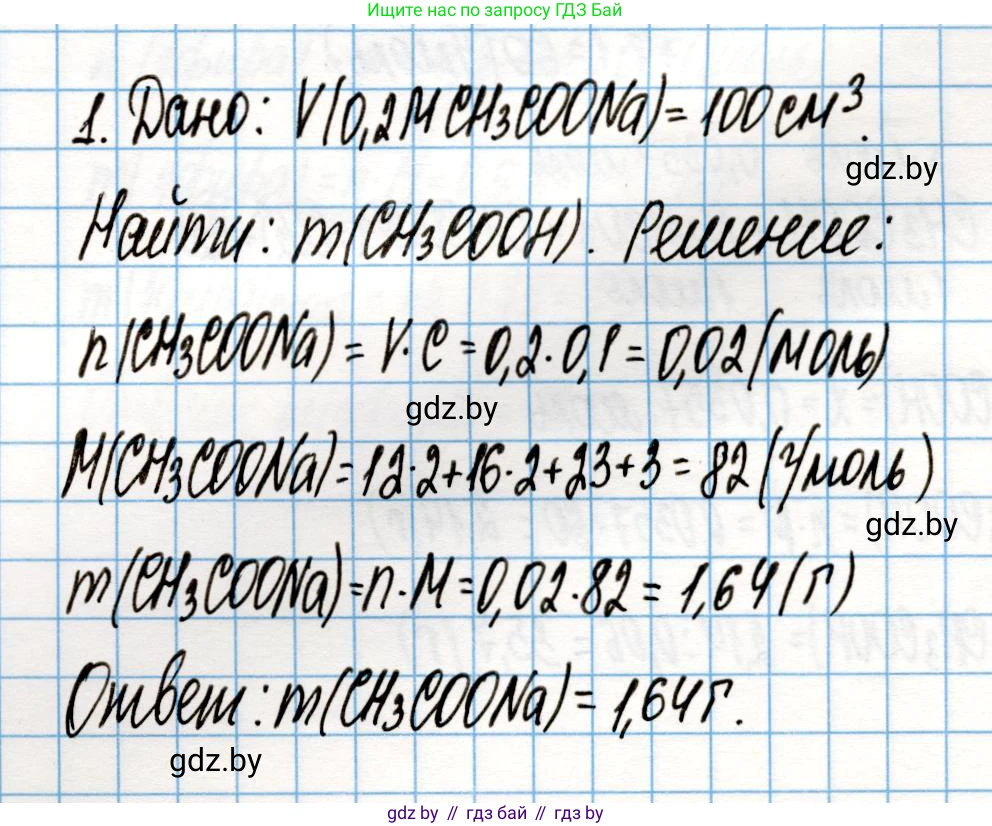 Ищите нас по запросу ГДЗ Бай
1. Дано: V(0,2M CH3COONa) = 100 см³.
gdz.by
Найти: m(CH3COOH). Решение:
n(CH3COONa) = V·C = 0,2·0,1 = 0,02 (моль)
gdz.by
M(CH3COONa) = 12·2+16·2+23+3 = 82 (г/моль)
gdz.by
m(CH3COONa) = n·M = 0,02·82 = 1,64 (г)
Ответ: m(CH3COONa) = 1,64 г.
gdz.by
gdz.by // гдз бай // gdz.by